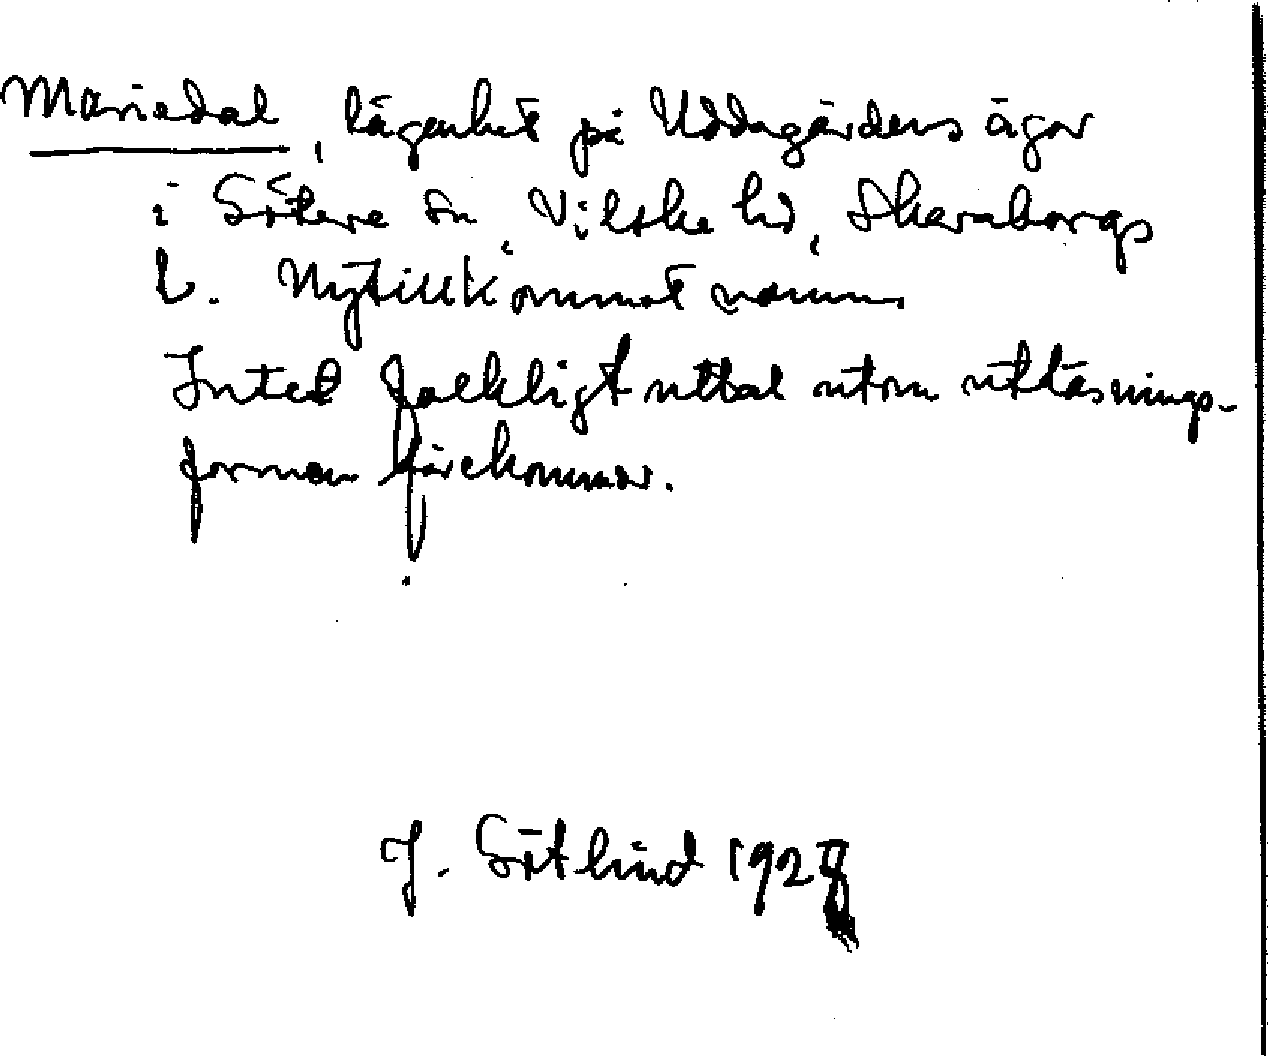 Mariedal, lägenhet på Uddagårdens ägor
i Sätene sn, Vilske hd, Skaraborgs
l. Nytillkommet namn
Intet folkligt uttal utom utläsnings-
formen förekommer.
J. Götlind 192